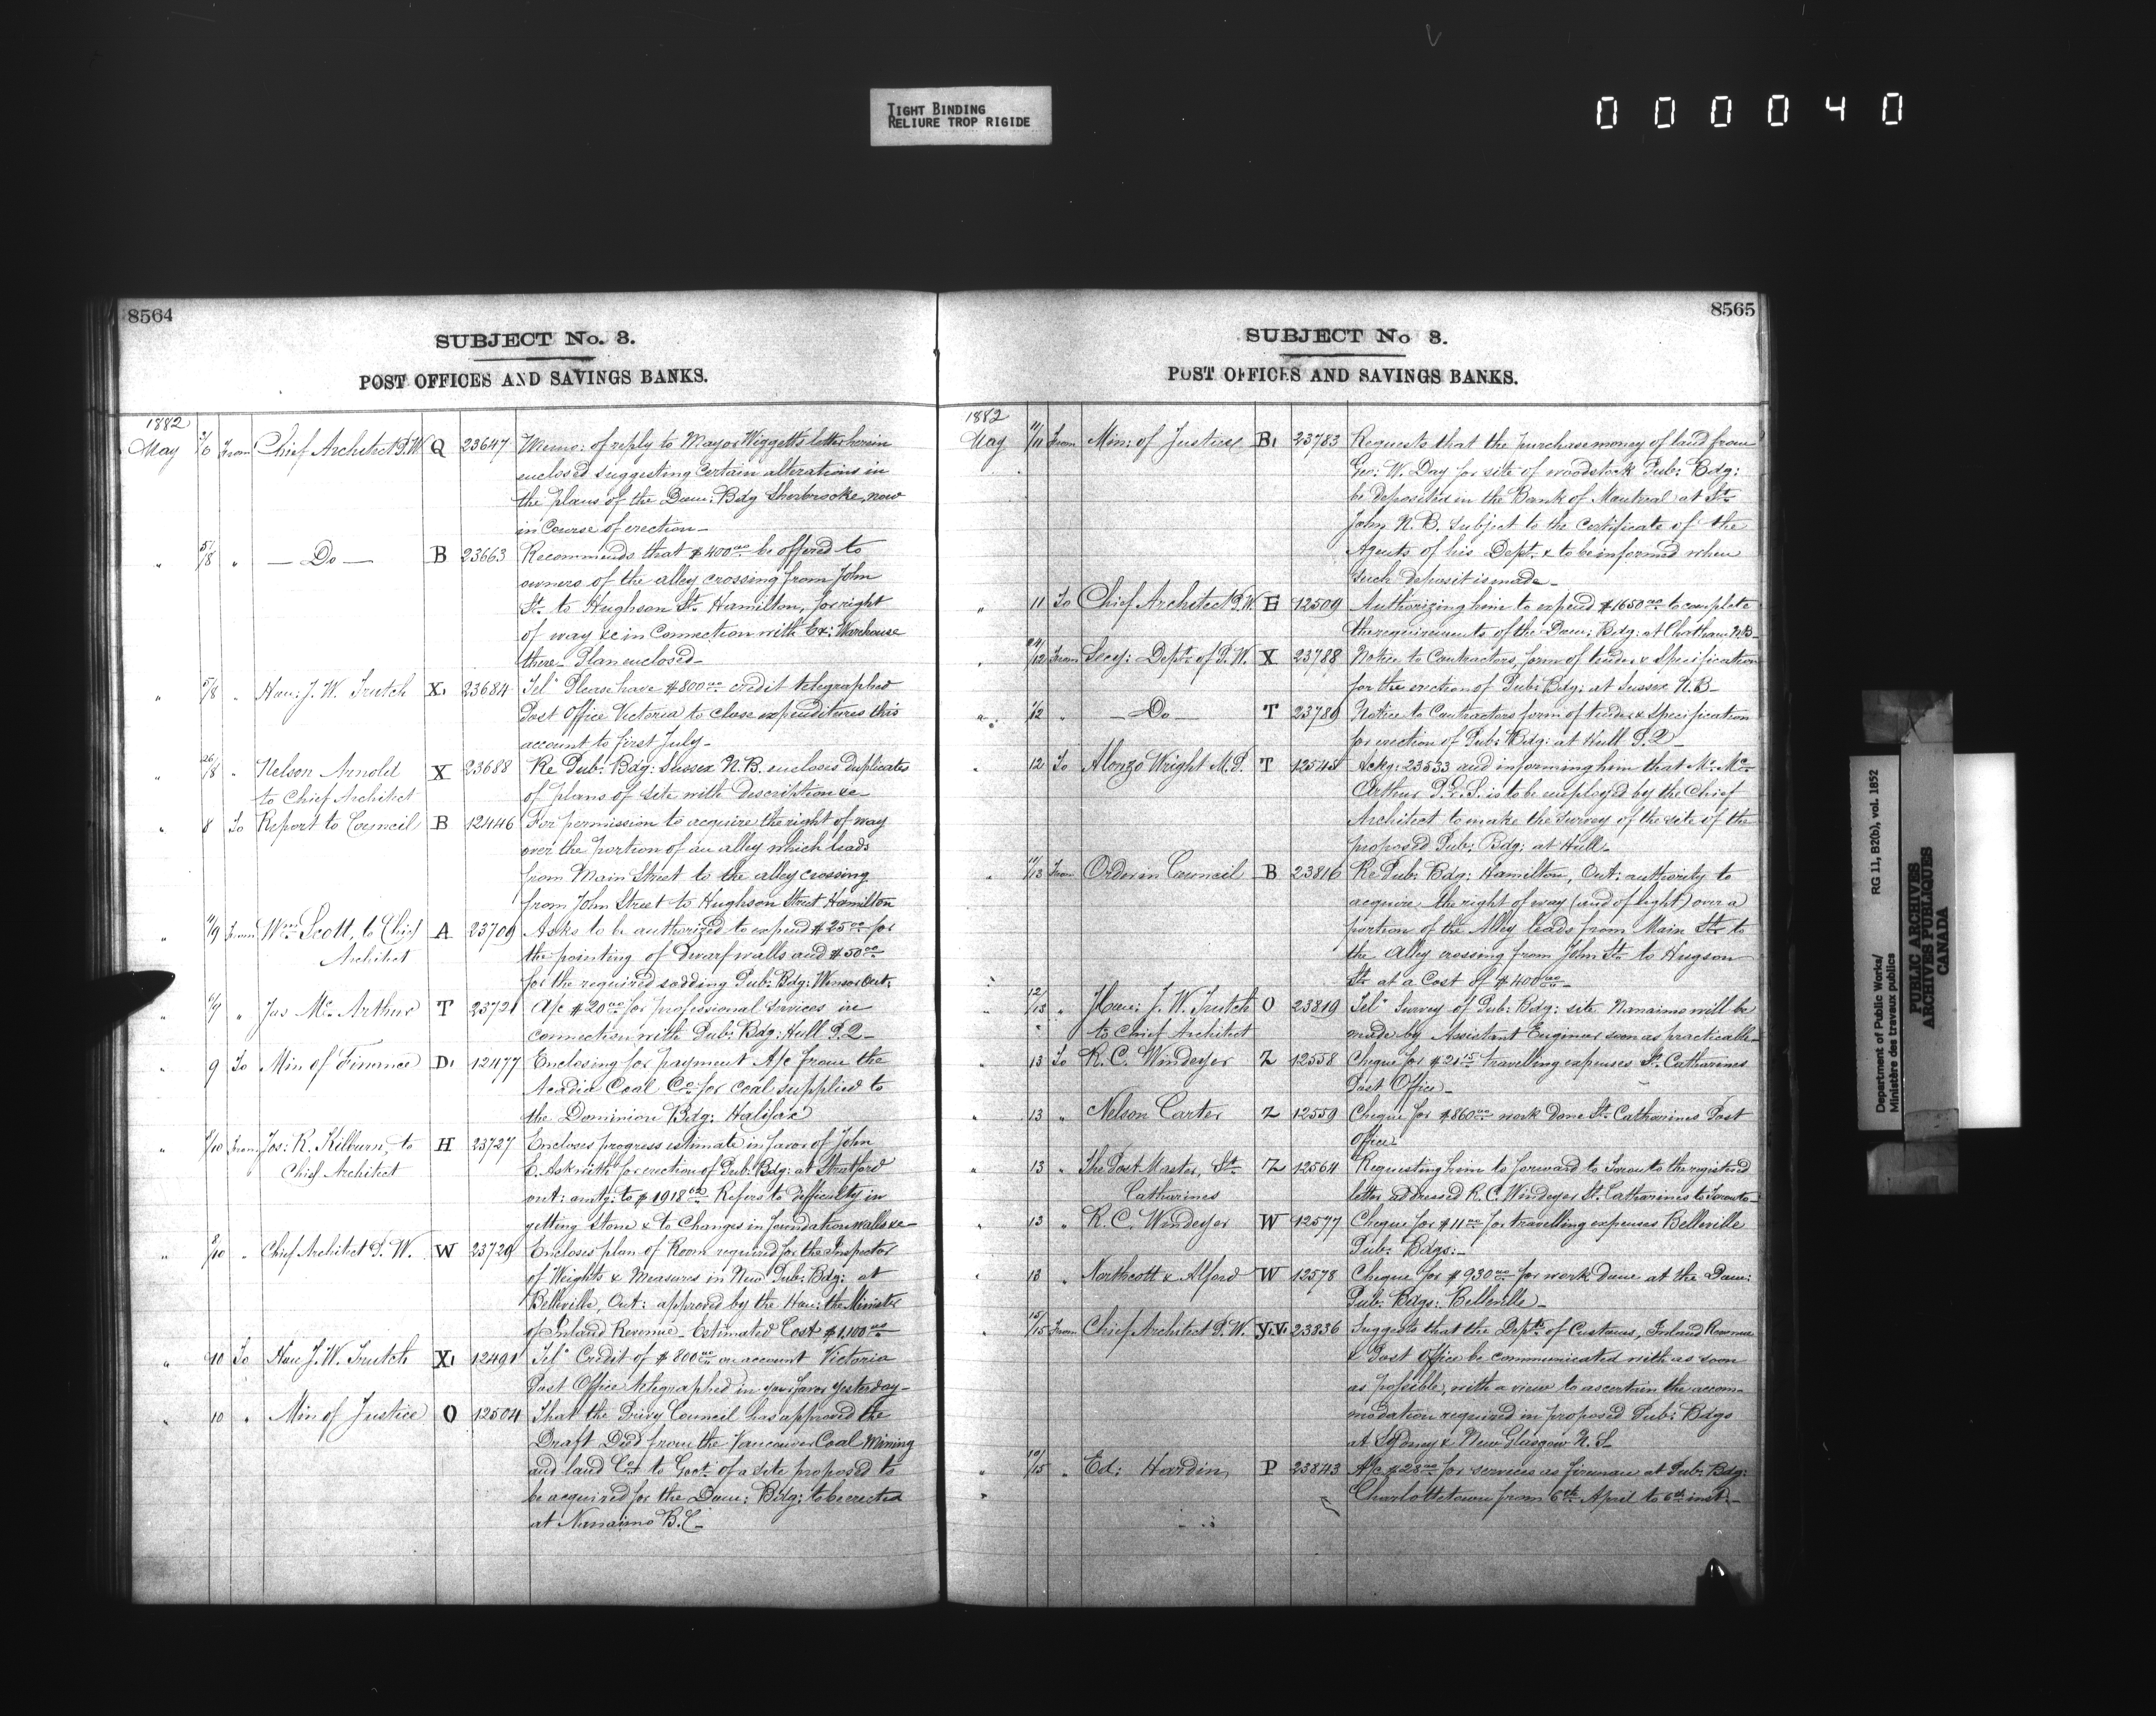 TIGHT BINDING
RELIURE TROP RIGIDE
000040
8564
SUBJECT No. 3.
POST OFFICES AND SAVINGS BANKS.
1882
May 5/6 From Chief Architect P.W. Q 23647 Memo: of reply to Mayor Wiggett's letter herein
enclosed suggesting certain alterations in
the plans of the Dom: Bdg Sherbrooke, now
in Course of erection_
" 5/8 " — Do — B 23663 Recommends that $400.00 be offered to
owners of the alley crossing from John
St. to Hughson St. Hamilton, for right
of way &c in Connection with Ex: Warehouse
there_ Plan enclosed_
" 5/8 " Hon: J. W. Trutch X, 23684 Tel: Please have $800.00 credit telegraphed
Post Office Victoria to close expenditures this
account to first July_
" 26/8 " Nelson Arnold X 23688 Re Pub: Bdg: Sussex N.B. encloses duplicates
to Chief Architect of plans of site with description &c
" 8 To Report to Council B 12446 For permission to acquire the right of way
over the portion of an alley which leads
from Main Street to the alley crossing
from John Street to Hughson Street Hamilton
" 4/9 From Wm. Scott, to Chief A 23709 Asks to be authorized to expend $25.00 for
Architect the pointing of Dwarf walls and $50.00
for the required sodding Pub: Bdg: Winsor Ont:
" 6/9 " Jas Mc.Arthur T 23721 A/c $20.00 for professional services in
connection with Pub: Bdg: Hull P.Q_
" 9 To Min of Finance D, 12477 Enclosing for payment A/c from the
Acadia Coal Co: for coal supplied to
the Dominion Bdg: Halifax
" 8/10 From Jos: R. Kilburn, to H 23727 Encloses progress estimate in favor of John
Chief Architect E. Askwith for erection of Pub: Bdg: at Stratford
Ont: amtg: to $1918.02 Refers to difficulty in
getting stone & to Changes in foundation walls &c_
" 8/10 " Chief Architect P. W. W 23729 Encloses plan of Room required for the Inspector
of Weights & Measures in New Pub: Bdg: at
Belleville, Ont: approved by the Hon: the Minister
of Inland Revenue_ Estimated Cost $1,100.00
" 10 To Hon J.W. Trutch X, 12491 Tel: Credit of $800.00 on account Victoria
Post Office telegraphed in your favor yesterday_
" 10 " Min of Justice O 12504 That the Privy Council has approved the
Draft Deed from the Vancouver Coal Mining
and land Co. to Govt: of a site proposed to
be acquired for the Dom: Bdg: to be erected
at Nanaimo B.C_
8565
SUBJECT No 3.
POST OFFICES AND SAVINGS BANKS.
1882
May 11/11 From Min: of Justice B, 23783 Requests that the purchase money of land from
Geo: W. Day for site of Woodstock Pub: Bdg:
be deposited in the Bank of Montreal at St.
John N.B. subject to the Certificate of the
Agents of his Dept. & to be informed when
such deposit is made_
" 11 To Chief Architect P.W. E 12509 Authorizing him to expend $1650.00 to complete
the requirements of the Dom: Bdg: at Chatham N.B_
" 24/12 From Secy: Dept: of P.W. X 23788 Notice to Contractors, form of tender & Specification
for the erection of Pub: Bdg: at Sussex N.B_
" 1/12 " — Do — T 23789 Notice to Contractors form of tender & specification
for erection of Pub: Bdg: at Hull P.Q_
" 12 To Alonzo Wright M.P. T 12545 Ackg: 23533 and informing him that Mr. Mc.
Arthur P.L.S. is to be employed by the Chief
Architect to make the survey of the site of the
proposed Pub: Bdg: at Hull_
" 11/13 From Order in Council B 23816 Re Pub: Bdg: Hamilton, Ont: authority to
acquire the right of way (and of light) over a
portion of the Alley leads from Main St. to
the Alley crossing from John St. to Hugson
St. at a Cost of $400.00_
" 12/13 " Hon: J. W. Trutch O 23819 Tel: Survey of Pub: Bdg: site Nanaimo will be
to Chief Architect made by Assistant Engineer soon as practicable_
" 13 To R. C. Windeyer Z 12558 Cheque for $21.15 travelling expenses St. Catharines
Post Office_
" 13 " Nelson Carter Z 12559 Cheque for $860.00 work done St. Catharines Post
Office_
" 13 " The Post Master, St. Z 12564 Requesting him to forward to Toronto the registered
Catharines letter addressed R. C. Windeyer St. Catharines to Toronto_
" 13 " R. C. Windeyer W 12577 Cheque for $11.00 for travelling expenses Belleville
Pub: Bdgs:_
" 13 " Northcott & Alford W 12578 Cheque for $930.00 for work done at the Dom:
Pub: Bdgs: Belleville_
" 15/15 From Chief Architect P.W. Y.V. 23836 Suggests that the Depts. of Customs, Inland Revenue
& Post Office be communicated with as soon
as possible, with a view to ascertain the accom-
modation required in proposed Pub: Bdgs
at Sydney & New Glasgow N.S_
" 10/15 " Ed: Hardin, P 23843 A/c $28.00 for services as fireman at Pub: Bdg:
Charlottetown from 6th April to 6th inst:_
Department of Public Works/ RG 11, B2(b), vol. 1852
Ministère des travaux publics
PUBLIC ARCHIVES
ARCHIVES PUBLIQUES
CANADA